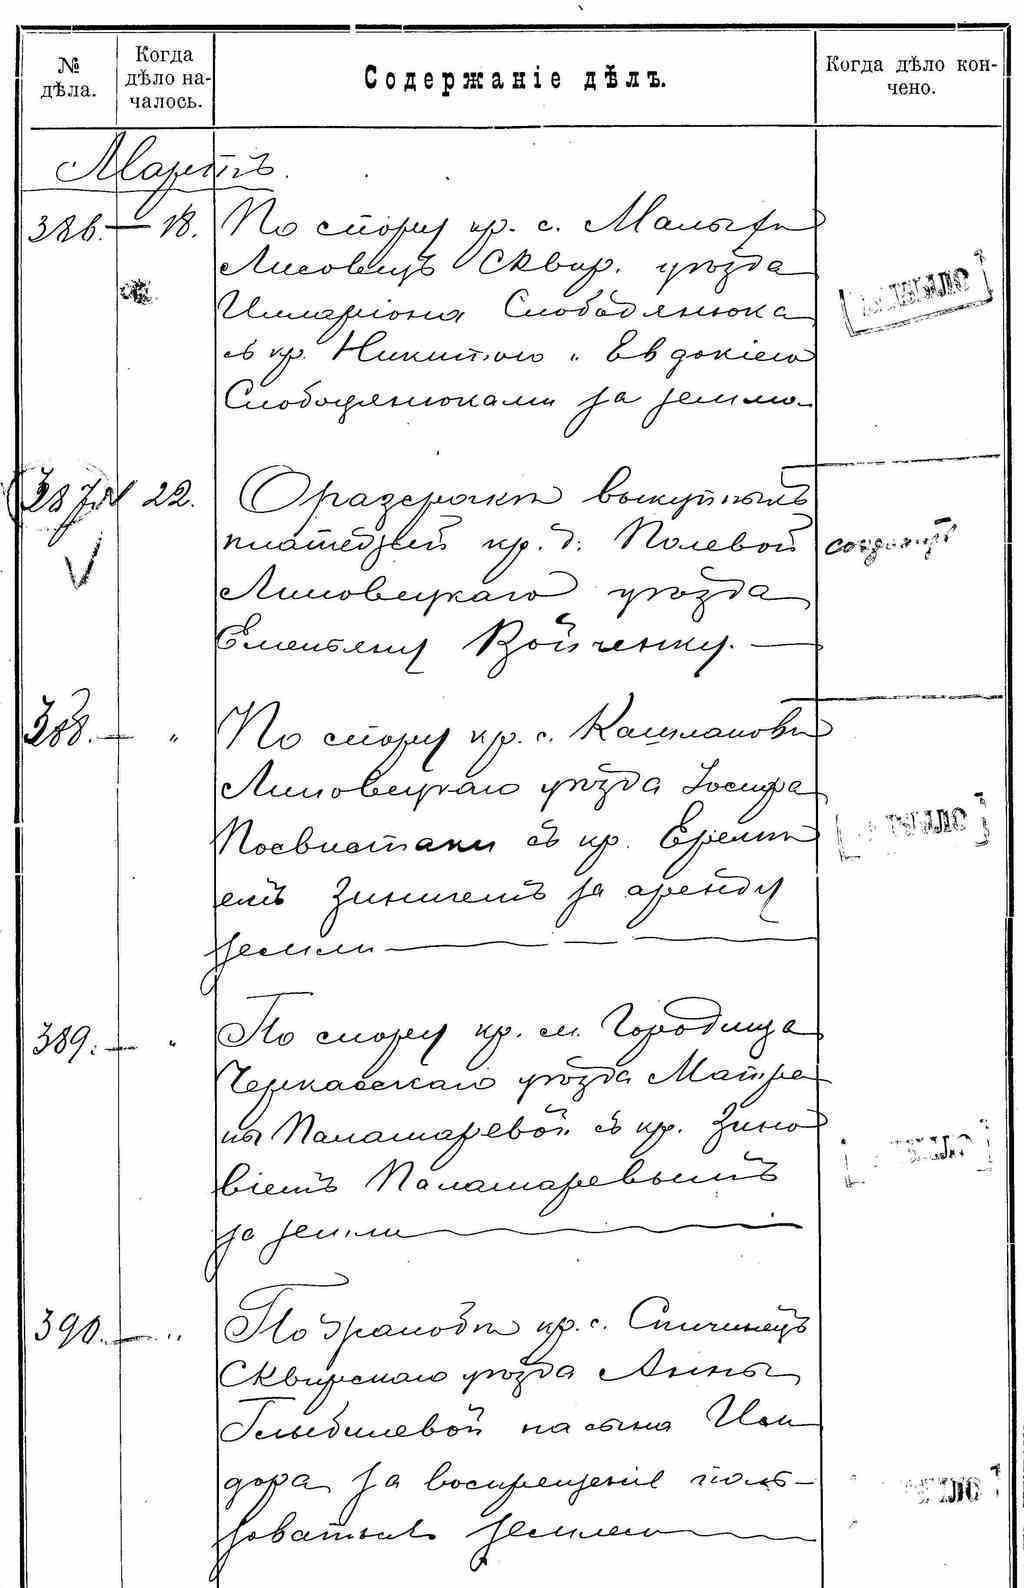 № дѣла.
Когда дѣло на-
чалось.
Содержаніе дѣлъ.
Когда дѣло кон-
чено.
Мартъ.
386. — 18. По спору кр. с. Малыхъ
Лисовецъ Сквир. уѣзда
Илларіона Слободянюка
съ кр. Никитою и Евдокіею
Слободянюками за землю.
387 22. О разсрочкѣ выкупныхъ
платежей кр. д. Полевой
Липовецкаго уѣзда
Емельяну Войченку. —
388. — „ По спору кр. с. Кашланова
Липовецкаго уѣзда Іосифа
Посвистаки съ кр. Еремѣ
емъ Зиничемъ за аренду
земли —
389. — „ По спору кр. м. Городища
Черкасскаго уѣзда Матре
ны Паламаревой съ кр. Зино
віемъ Паламаревымъ
за земли
390. — „ По жалобѣ кр. с. Спичинецъ
Сквирскаго уѣзда Анны
на сына Иси
дора за воспрещеніе поль-
зоваться землею